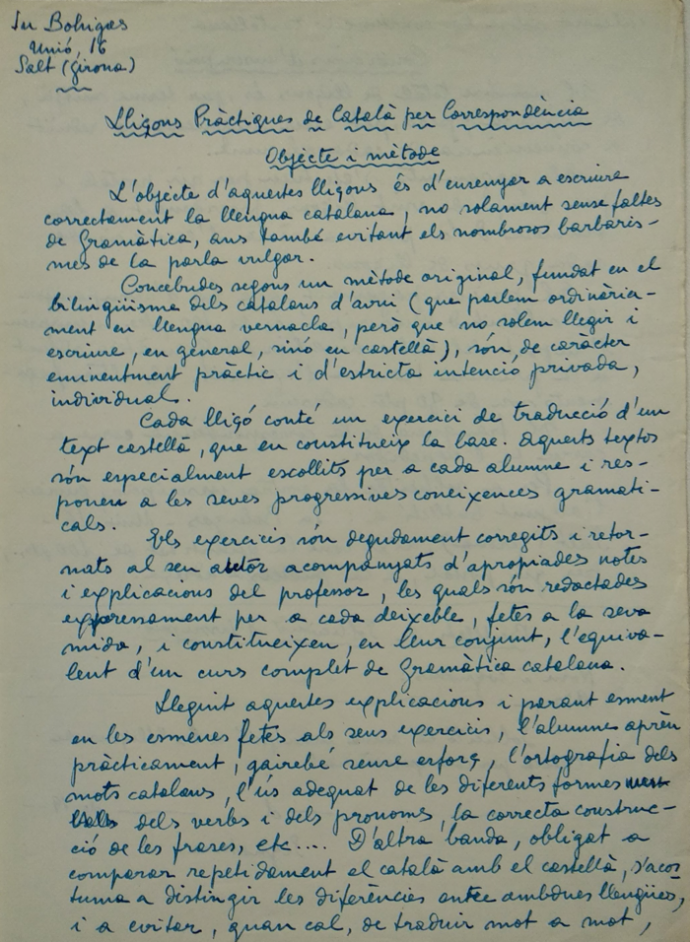 Bohigas
Unió, 16
Salt (Girona)
Lliçons Pràctiques de Català per Correspondència
Objècte i mètode
L'objècte d'aquestes lliçons és d'ensenyar a escriure
correctament la llengua catalana, no solament sense faltes
de Gramàtica, ans també evitant els nombrosos barbaris-
mes de la parla vulgar.
Concebudes segons un mètode original, fundat en el
bilingüisme dels catalans d'avui (que parlem ordinària-
ment en llengua vernacla, però que no solem llegir i
escriure, en general, sinó en castellà), són de caràcter
eminentment pràctic i d'estricta intenció privada,
individual.
Cada lliçó conté un exercici de traducció d'un
text castellà, que en constitueix la base. Aquests textos
són especialment escollits per a cada alumne i res-
ponen a les seves progressives coneixences gramati-
cals.
Els exercicis són degudament corregits i retor-
nats al seu autor acompanyats d'apropiades notes
i explicacions del professor, les quals són redactades
expressament per a cada deixeble, fetes a la seva
mida, i constitueixen, en llur conjunt, l'equiva-
lent d'un curs complet de Gramàtica catalana.
Llegint aquestes explicacions i parant esment
en les esmenes fetes als seus exercicis, l'alumne aprèn
pràcticament, gairebé sense esforç, l'ortografia dels
mots catalans, l'ús adequat de les diferents formes
dels verbs i dels pronoms, la correcta construc-
ció de les frases, etc.... D'altra banda, obligat a
comparar repetidament el català amb el castellà, s'acos-
tuma a distingir les diferències entre ambdues llengües,
i a evitar, quan cal, de traduir mot a mot,